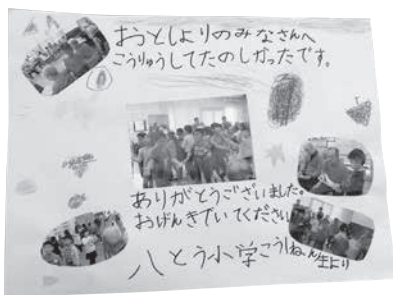 おとしよりのみなさんへ
こうりゅうしてたのしかったです。
ありがとうございました。
おげんきでいてください
八とう小学こう1ねん生より